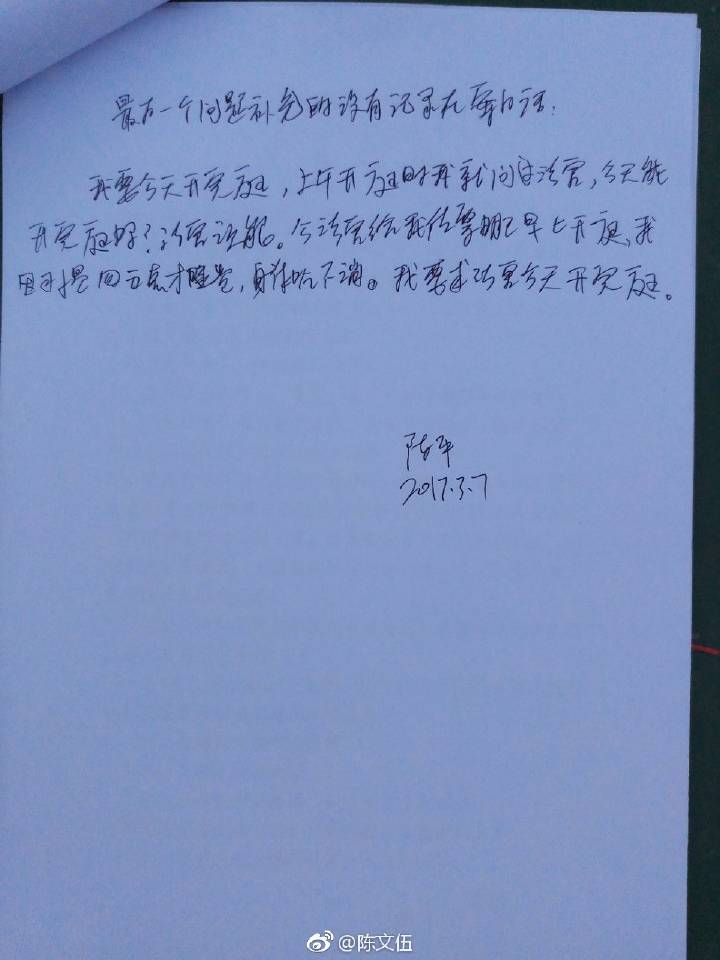 最后一个问题补充的没有记录在案的话:
我要今天开完庭,上午开庭时我就问过法官,今天能
开完庭吗?法官说能。今法官给我传票明天早上开庭,我
因四点才睡觉,身体吃不消。我要求法官今天开完庭。
陈平
2017.3.7
@陈文伍